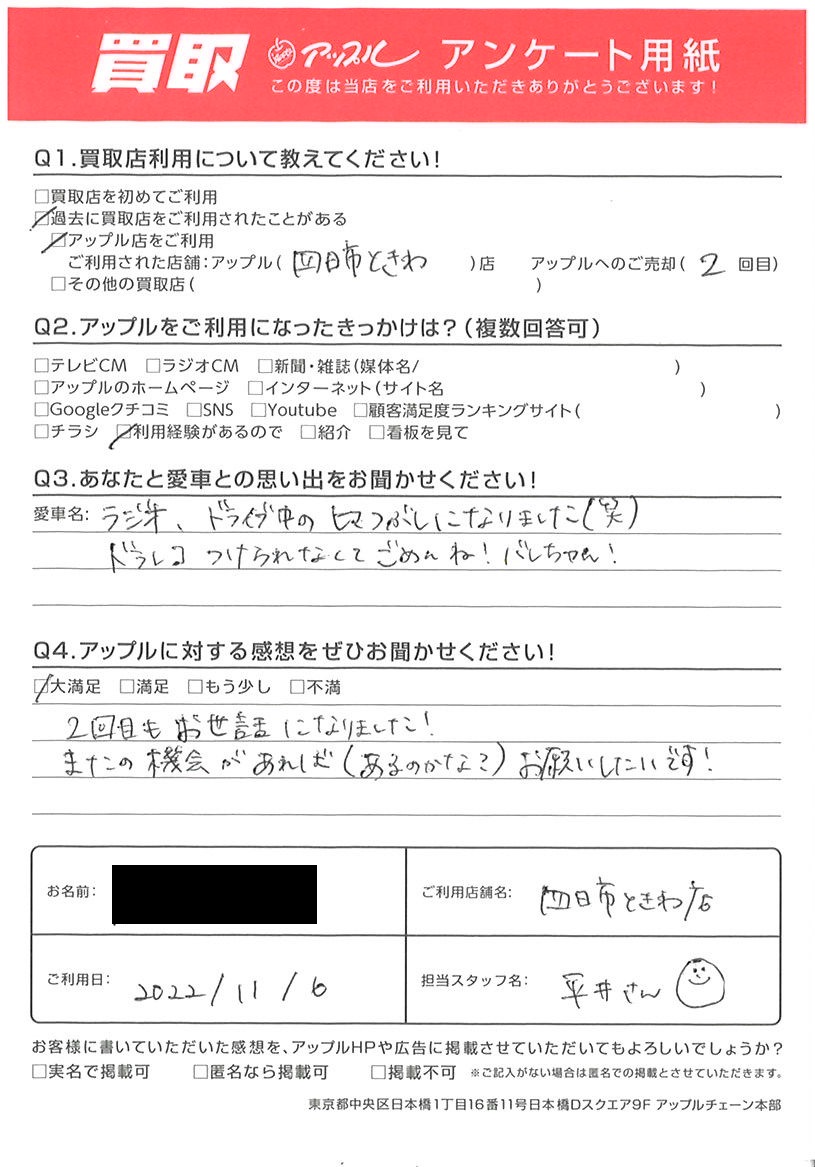 買取 アップル アンケート用紙
この度は当店をご利用いただきありがとうございます!
Q1.買取店利用について教えてください!
□買取店を初めてご利用
☑過去に買取店をご利用されたことがある
☑アップル店をご利用
ご利用された店舗:アップル( 四日市ときわ )店 アップルへのご売却( 2 回目)
□その他の買取店( )
Q2.アップルをご利用になったきっかけは?(複数回答可)
□テレビCM □ラジオCM □新聞・雑誌(媒体名/ )
□アップルのホームページ □インターネット(サイト名 )
□Googleクチコミ □SNS □Youtube □顧客満足度ランキングサイト( )
□チラシ ☑利用経験があるので □紹介 □看板を見て
Q3.あなたと愛車との思い出をお聞かせください!
愛車名: ラジオ、ドライブ中のヒマつぶしになりました(笑)
ドラレコ つけられなくて ごめんね! バレちゃん!
Q4.アップルに対する感想をぜひお聞かせください!
☑大満足 □満足 □もう少し □不満
2回目も お世話 になりました!
またの機会があれば(あるのかな?)お願いしたいです!
お名前: ご利用店舗名: 四日市ときわ店
ご利用日: 2022/11/6 担当スタッフ名: 平井さん
お客様に書いていただいた感想を、アップルHPや広告に掲載させていただいてもよろしいでしょうか?
□実名で掲載可 □匿名なら掲載可 □掲載不可 ※ご記入がない場合は匿名での掲載とさせていただきます。
東京都中央区日本橋1丁目16番11号日本橋Dスクエア9F アップルチェーン本部